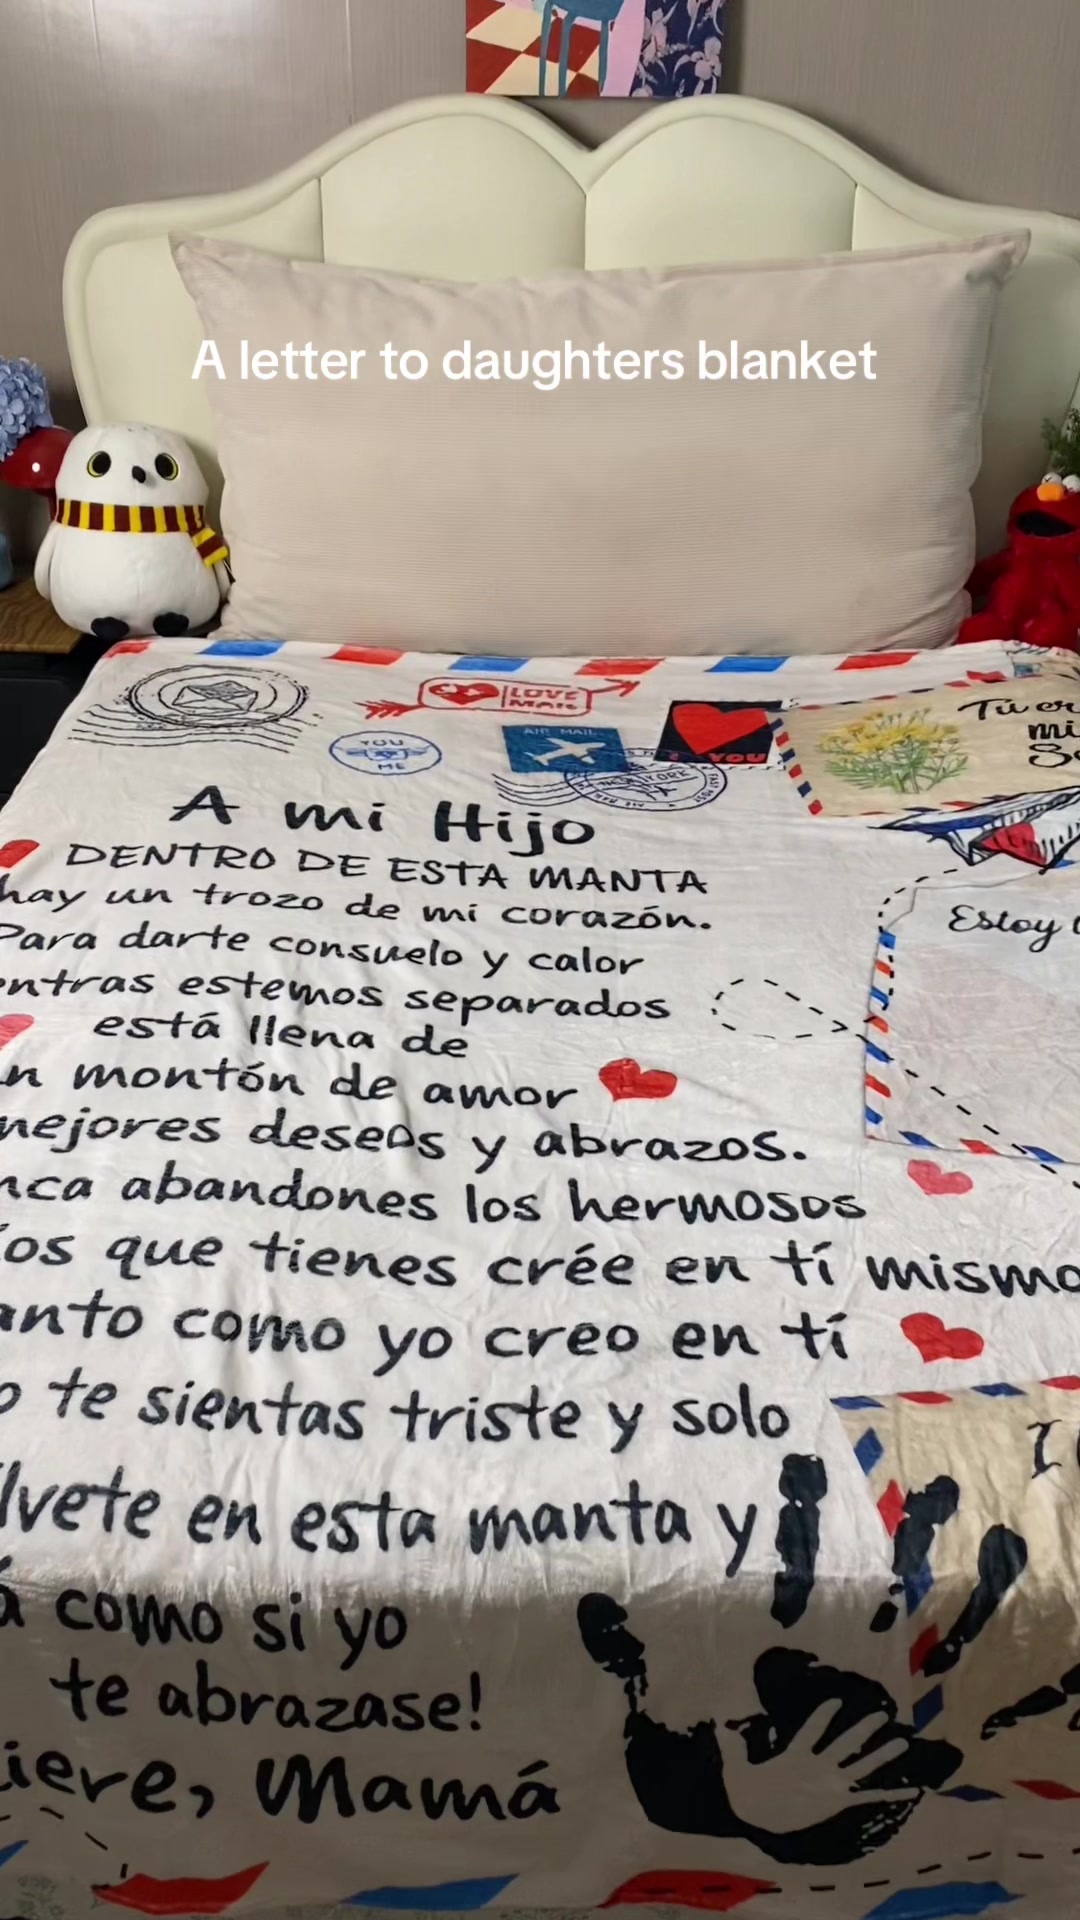 A letter to daughters blanket
LOVE
MAIL
YOU
ME
AIR MAIL
YOU
NEW YORK
Tú
mi
A mi Hijo
DENTRO DE ESTA MANTA
hay un trozo de mi corazón.
Para darte consuelo y calor
estemos separados
está llena de
montón de amor
mejores deseos y abrazos.
abandones los hermosos
que tienes crée en tí mismo
como yo creo en tí
te sientas triste y solo
en esta manta y
como si yo
te abrazase!
Mamá
Estoy
I